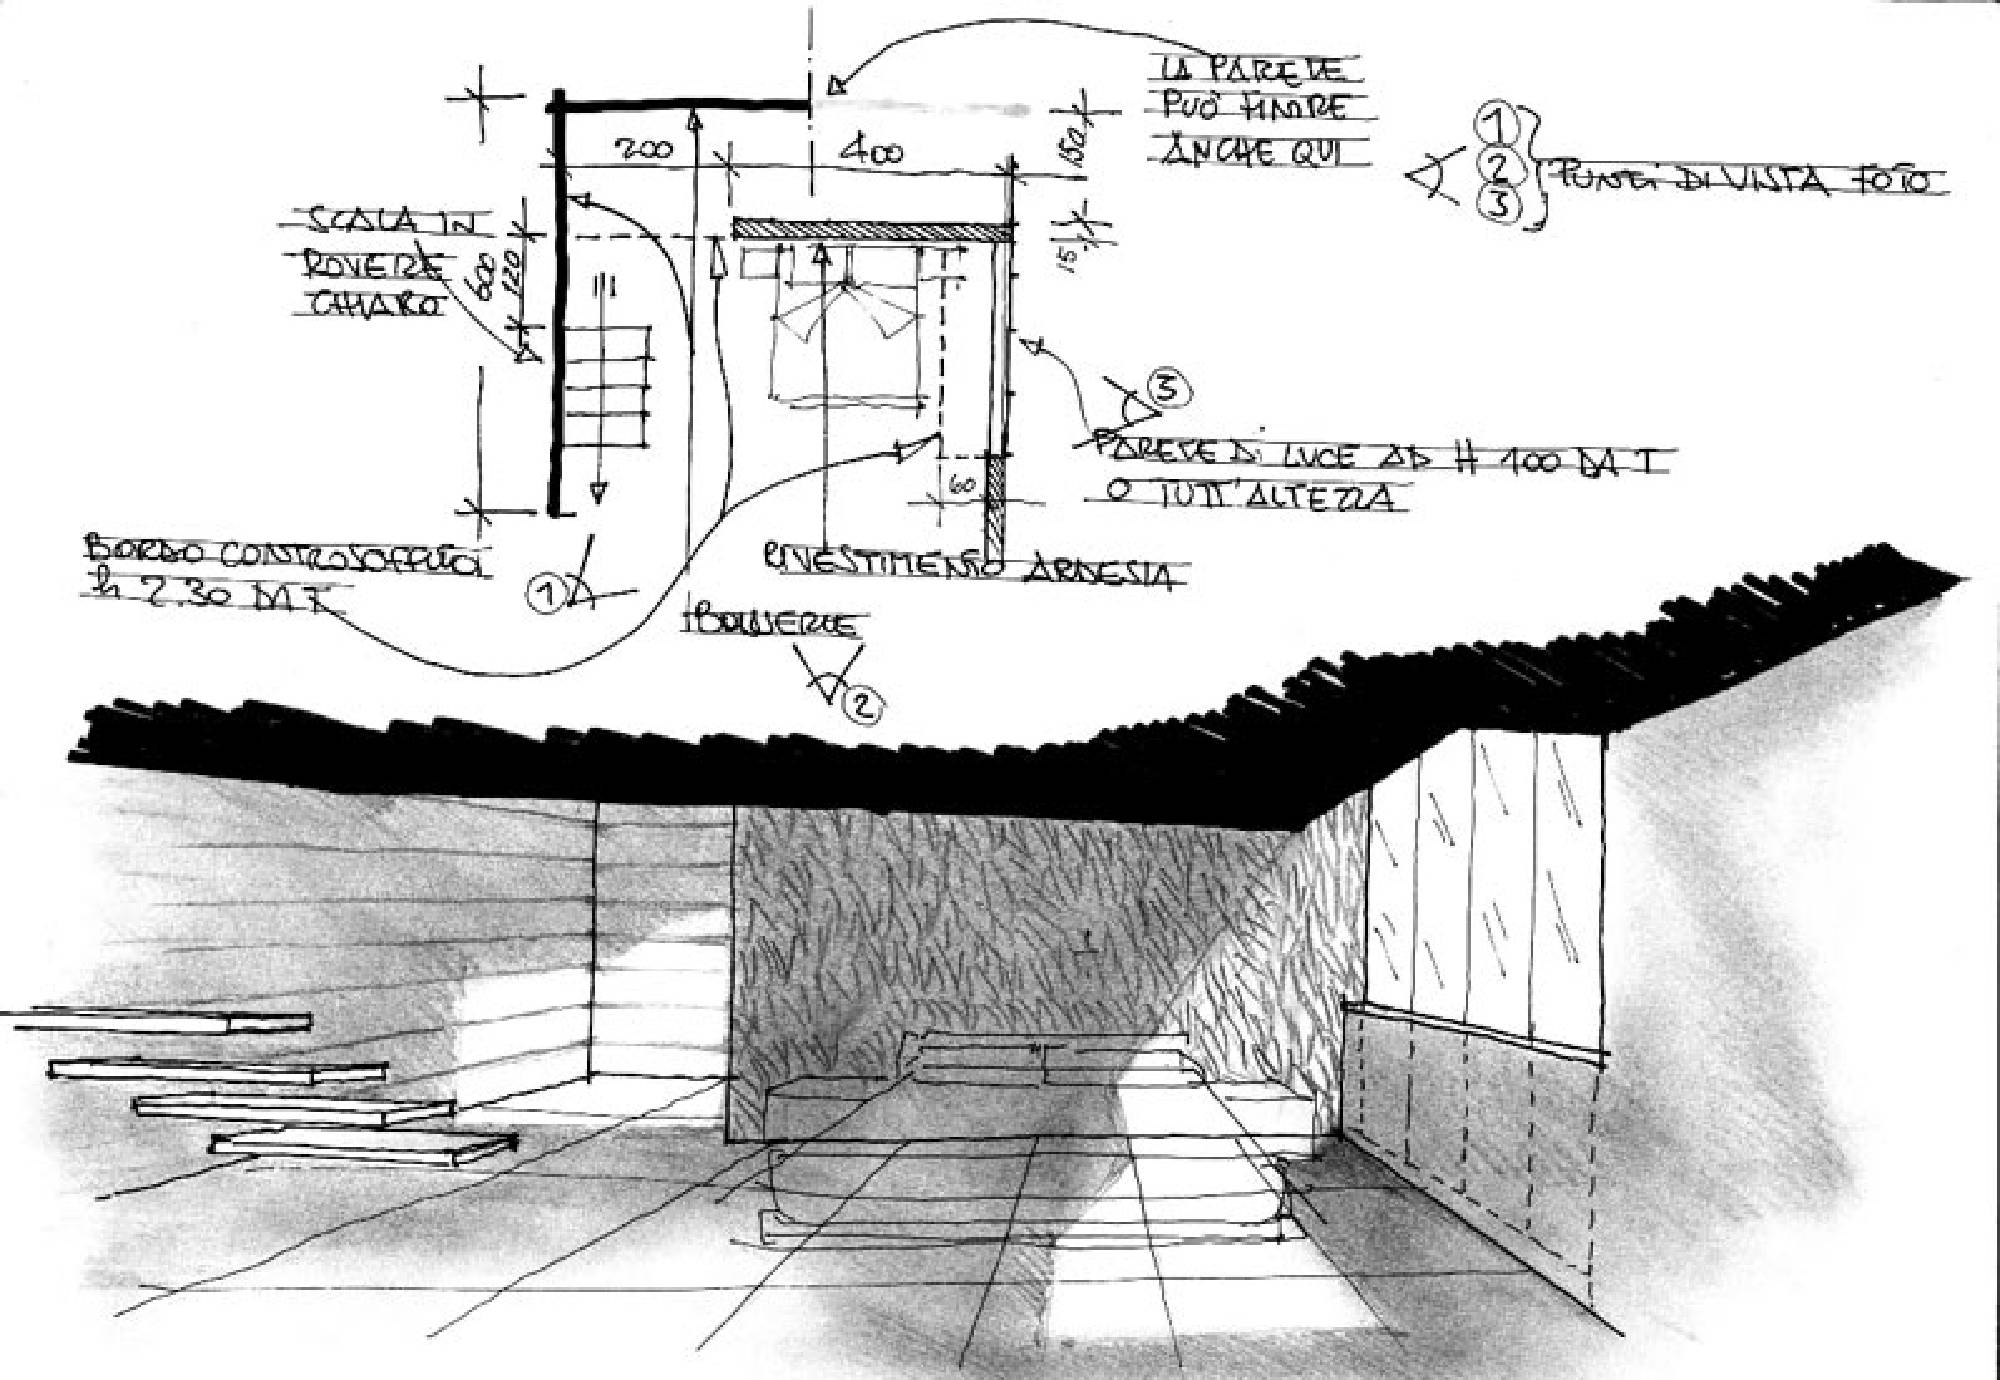 LA PARETE
PUÒ FINIRE
ANCHE QUI
1
2
3
PUNTI DI VISTA FOTO
200
400
150
SCALA IN
ROVERE
CHIARO
600
120
15
3
PARETE DI LUCE AD H 100 DA T
O TUTT'ALTEZZA
60
BORDO CONTROSOFFITTO
h 2.30 DA T
1
RIVESTIMENTO ARDESIA
BOISERIE
2